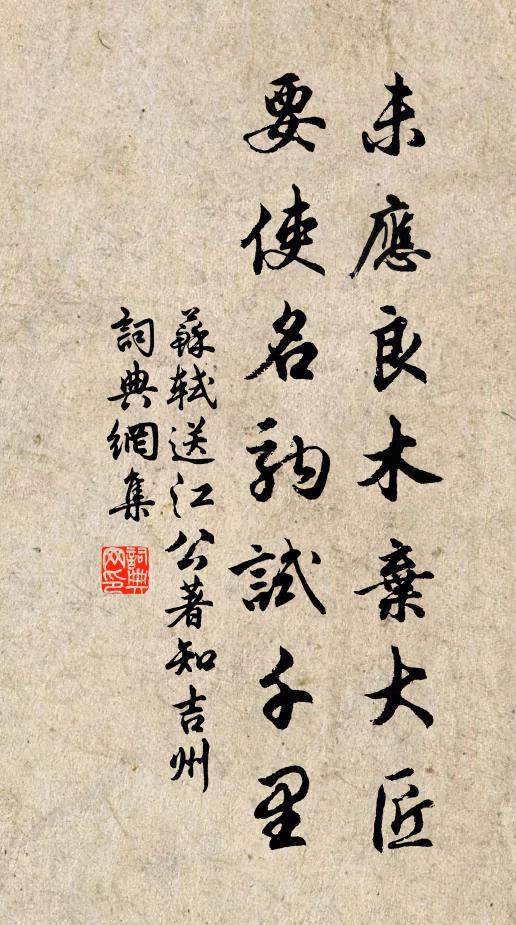 未應良木棄大匠
要使名駒試千里
蘇軾送江公著知吉州
詞典網集
詞典
网印